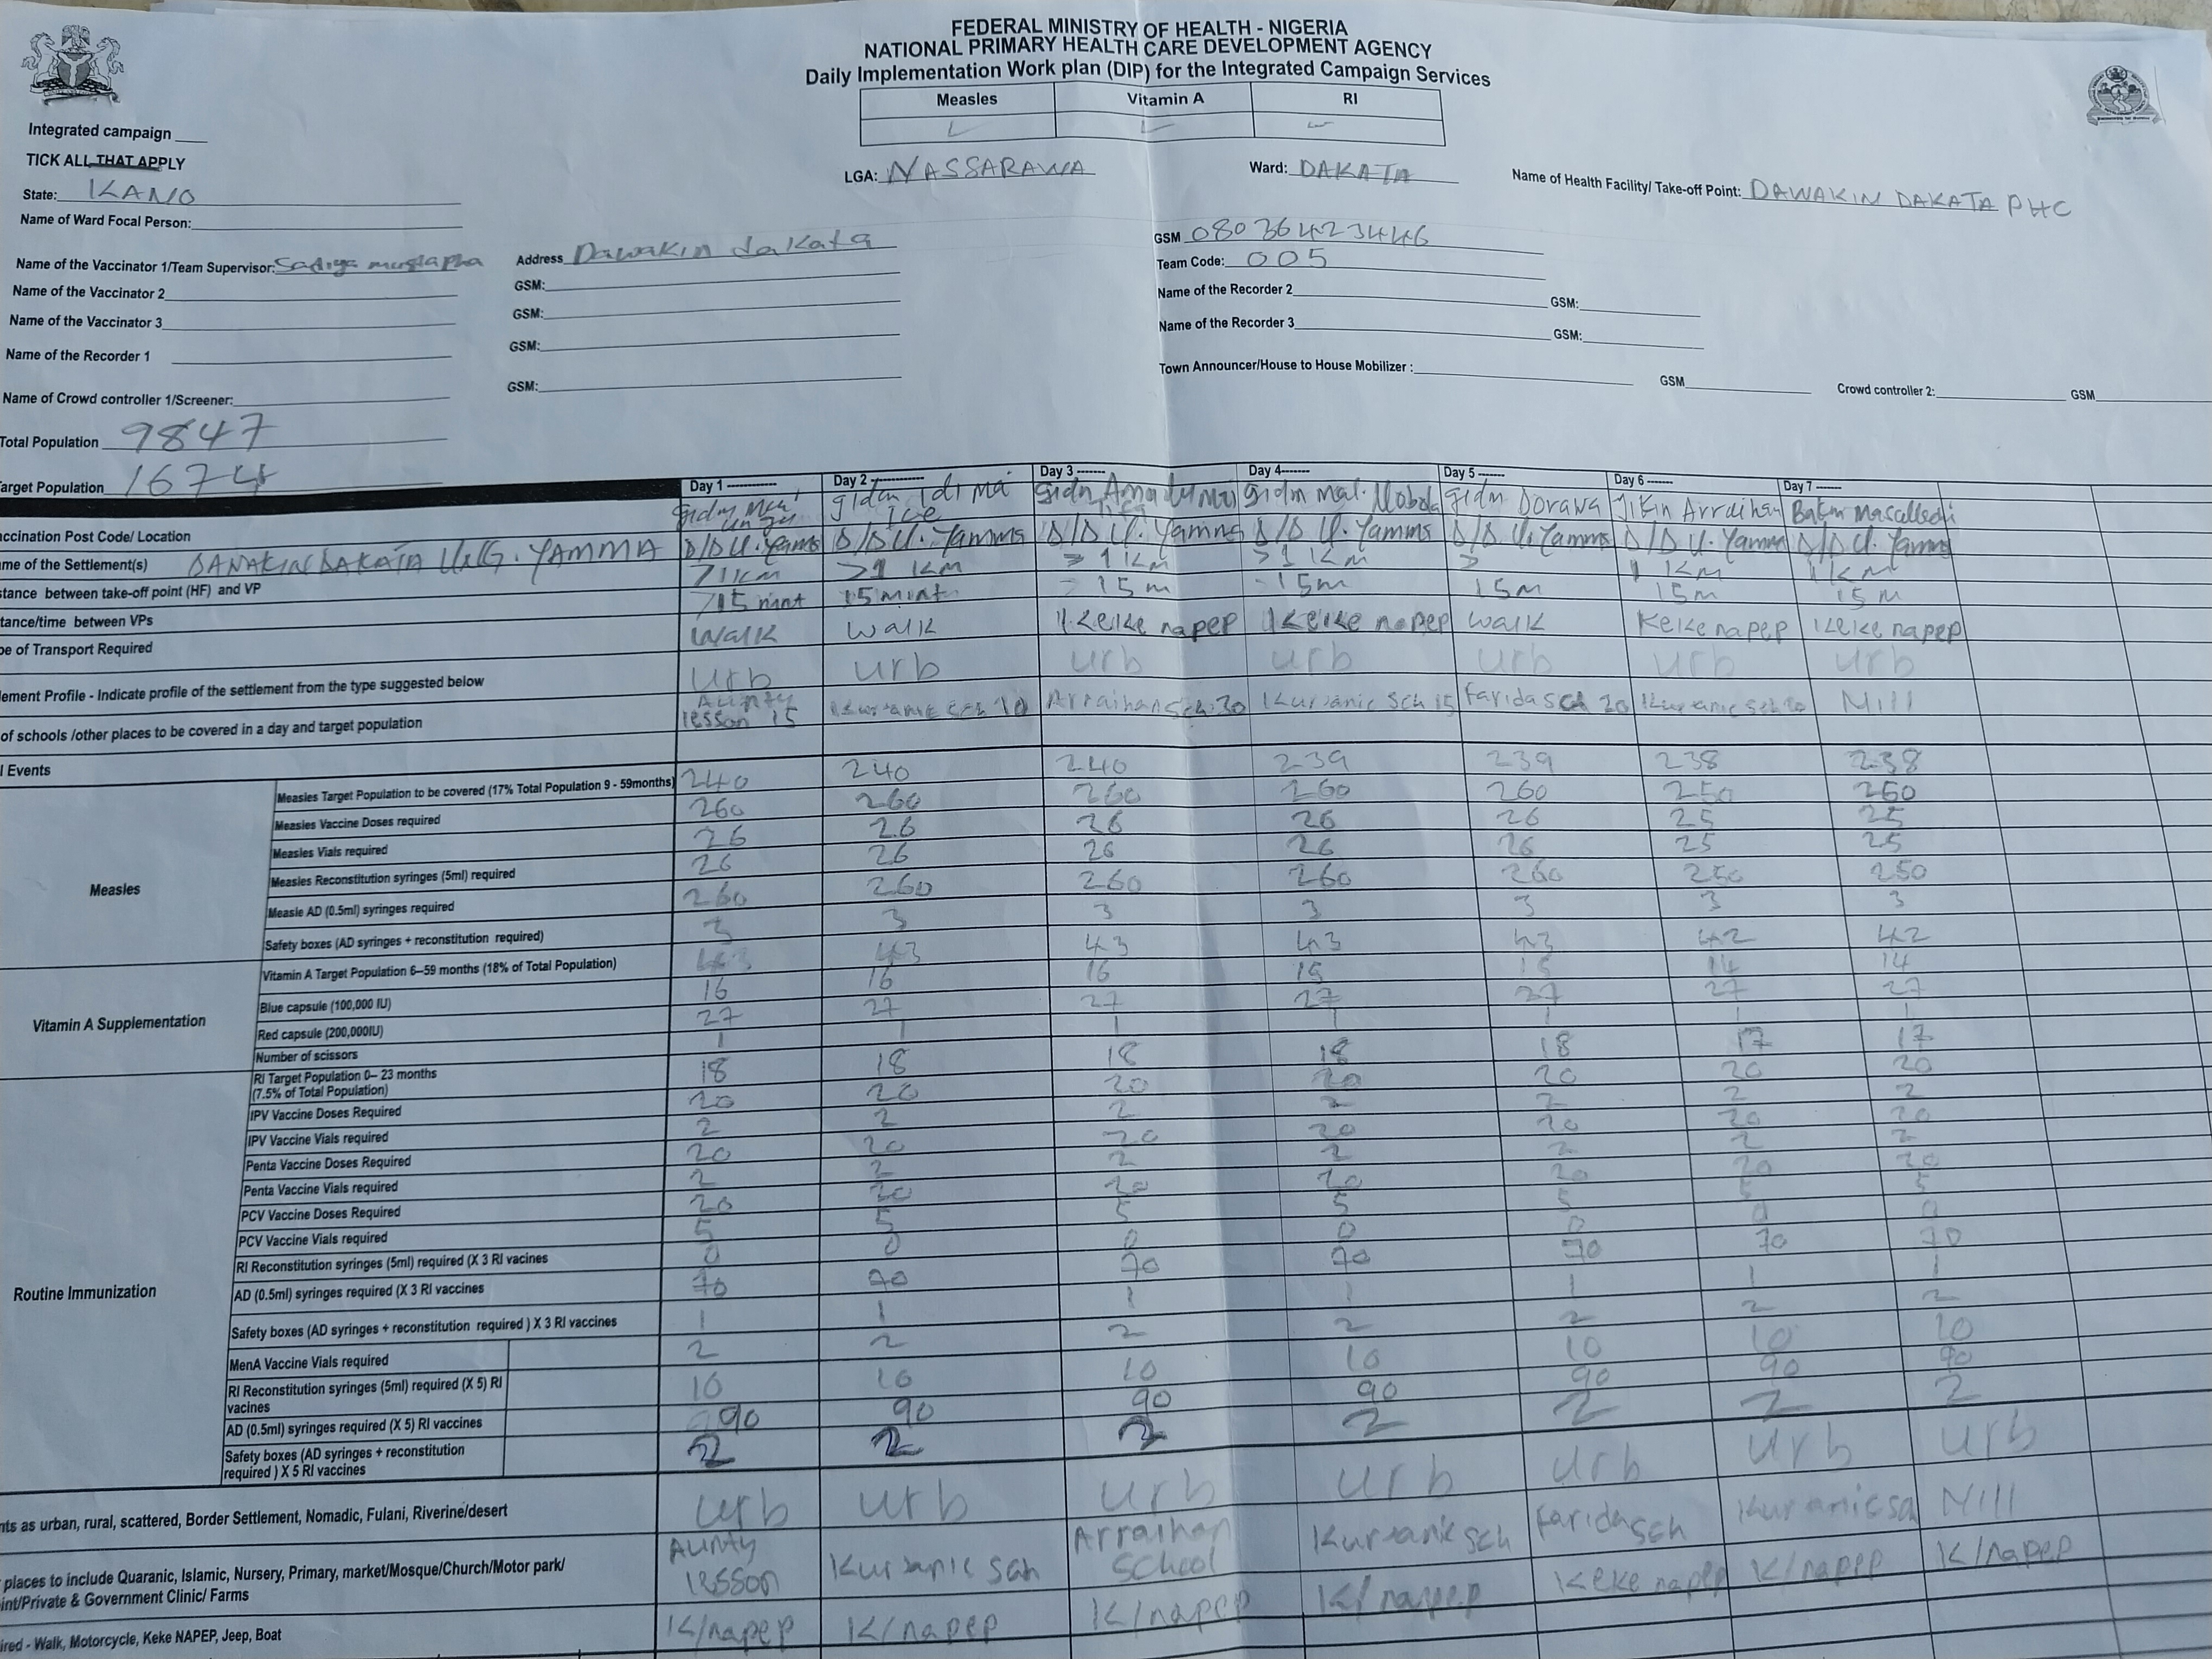 FEDERAL MINISTRY OF HEALTH - NIGERIA
NATIONAL PRIMARY HEALTH CARE DEVELOPMENT AGENCY
Daily Implementation Work plan (DIP) for the Integrated Campaign Services
Integrated campaign
Measles Vitamin A RI
TICK ALL THAT APPLY
State: KANO LGA: NASSARAWA Ward: DAKATA Name of Health Facility/ Take-off Point: DAWAKIN DAKATA PHC
Name of Ward Focal Person: GSM 08036423446
Name of the Vaccinator 1/Team Supervisor: Address Dawakin dakata Team Code: 005
Name of the Vaccinator 2 GSM: Name of the Recorder 2 GSM:
Name of the Vaccinator 3 GSM: Name of the Recorder 3 GSM:
Name of the Recorder 1 GSM:
Name of Crowd controller 1/Screener: GSM: Town Announcer/House to House Mobilizer : GSM Crowd controller 2: GSM
Total Population 9847
arget Population 1674
Day 1 Day 2 Day 3 Day 4 Day 5 Day 6 Day 7
ccination Post Code/ Location
me of the Settlement(s) DAWAKIN DAKATA UNG. YAMMA
tance between take-off point (HF) and VP
tance/time between VPs 15 mint 15mint 15m 15m 15m 15m 15m
pe of Transport Required Walk Walk keke napep keke napep Walk Keke napep keke napep
lement Profile - Indicate profile of the settlement from the type suggested below Urb Urb Urb Urb Urb Urb Urb
of schools /other places to be covered in a day and target population Aunty lesson 15 Arraihan sch 20 Kur'anic sch 15 Farida sch 20 Nill
l Events
Measles
Measles Target Population to be covered (17% Total Population 9 - 59months) 240 240 240 239 239 238 238
Measles Vaccine Doses required 260 260 260 260 260 250 250
Measles Vials required 26 26 26 26 26 25 25
Measles Reconstitution syringes (5ml) required 26 26 26 26 26 25 25
Measle AD (0.5ml) syringes required 260 260 260 260 260 250 250
Safety boxes (AD syringes + reconstitution required) 3 3 3 3 3 3 3
Vitamin A Supplementation
Vitamin A Target Population 6–59 months (18% of Total Population) 443 443 443 443 443 442 442
Blue capsule (100,000 IU) 16 16 16 15 15 14 14
Red capsule (200,000IU) 27 27 27 27 27 27 27
Number of scissors 1 1 1 1 1 1 1
Routine Immunization
RI Target Population 0– 23 months (7.5% of Total Population) 18 18 18 18 18 17 17
IPV Vaccine Doses Required 20 20 20 20 20 20 20
IPV Vaccine Vials required 2 2 2 2 2 2 2
Penta Vaccine Doses Required 20 20 20 20 20 20 20
Penta Vaccine Vials required 2 2 2 2 2 2 2
PCV Vaccine Doses Required 20 20 20 20 20 20 20
PCV Vaccine Vials required 5 5 5 5 5 5 5
RI Reconstitution syringes (5ml) required (X 3 RI vacines 0 0 0 0 0 0 0
AD (0.5ml) syringes required (X 3 RI vaccines 70 70 70 70 70 70 70
Safety boxes (AD syringes + reconstitution required ) X 3 RI vaccines 1 1 1 1 1 1 1
MenA Vaccine Vials required 2 2 2 2 2 2 2
RI Reconstitution syringes (5ml) required (X 5) RI vacines 10 10 10 10 10 10 10
AD (0.5ml) syringes required (X 5) RI vaccines 90 90 90 90 90 90 90
Safety boxes (AD syringes + reconstitution required ) X 5 RI vaccines 2 2 2 2 2 2 2
nts as urban, rural, scattered, Border Settlement, Nomadic, Fulani, Riverine/desert Urb Urb Urb Urb Urb Urb Urb
places to include Quaranic, Islamic, Nursery, Primary, market/Mosque/Church/Motor park/ Aunty lesson Arraihan School Farida sch Nill
int/Private & Government Clinic/ Farms
ired - Walk, Motorcycle, Keke NAPEP, Jeep, Boat K/napep K/napep K/napep K/napep Keke napep K/napep K/napep